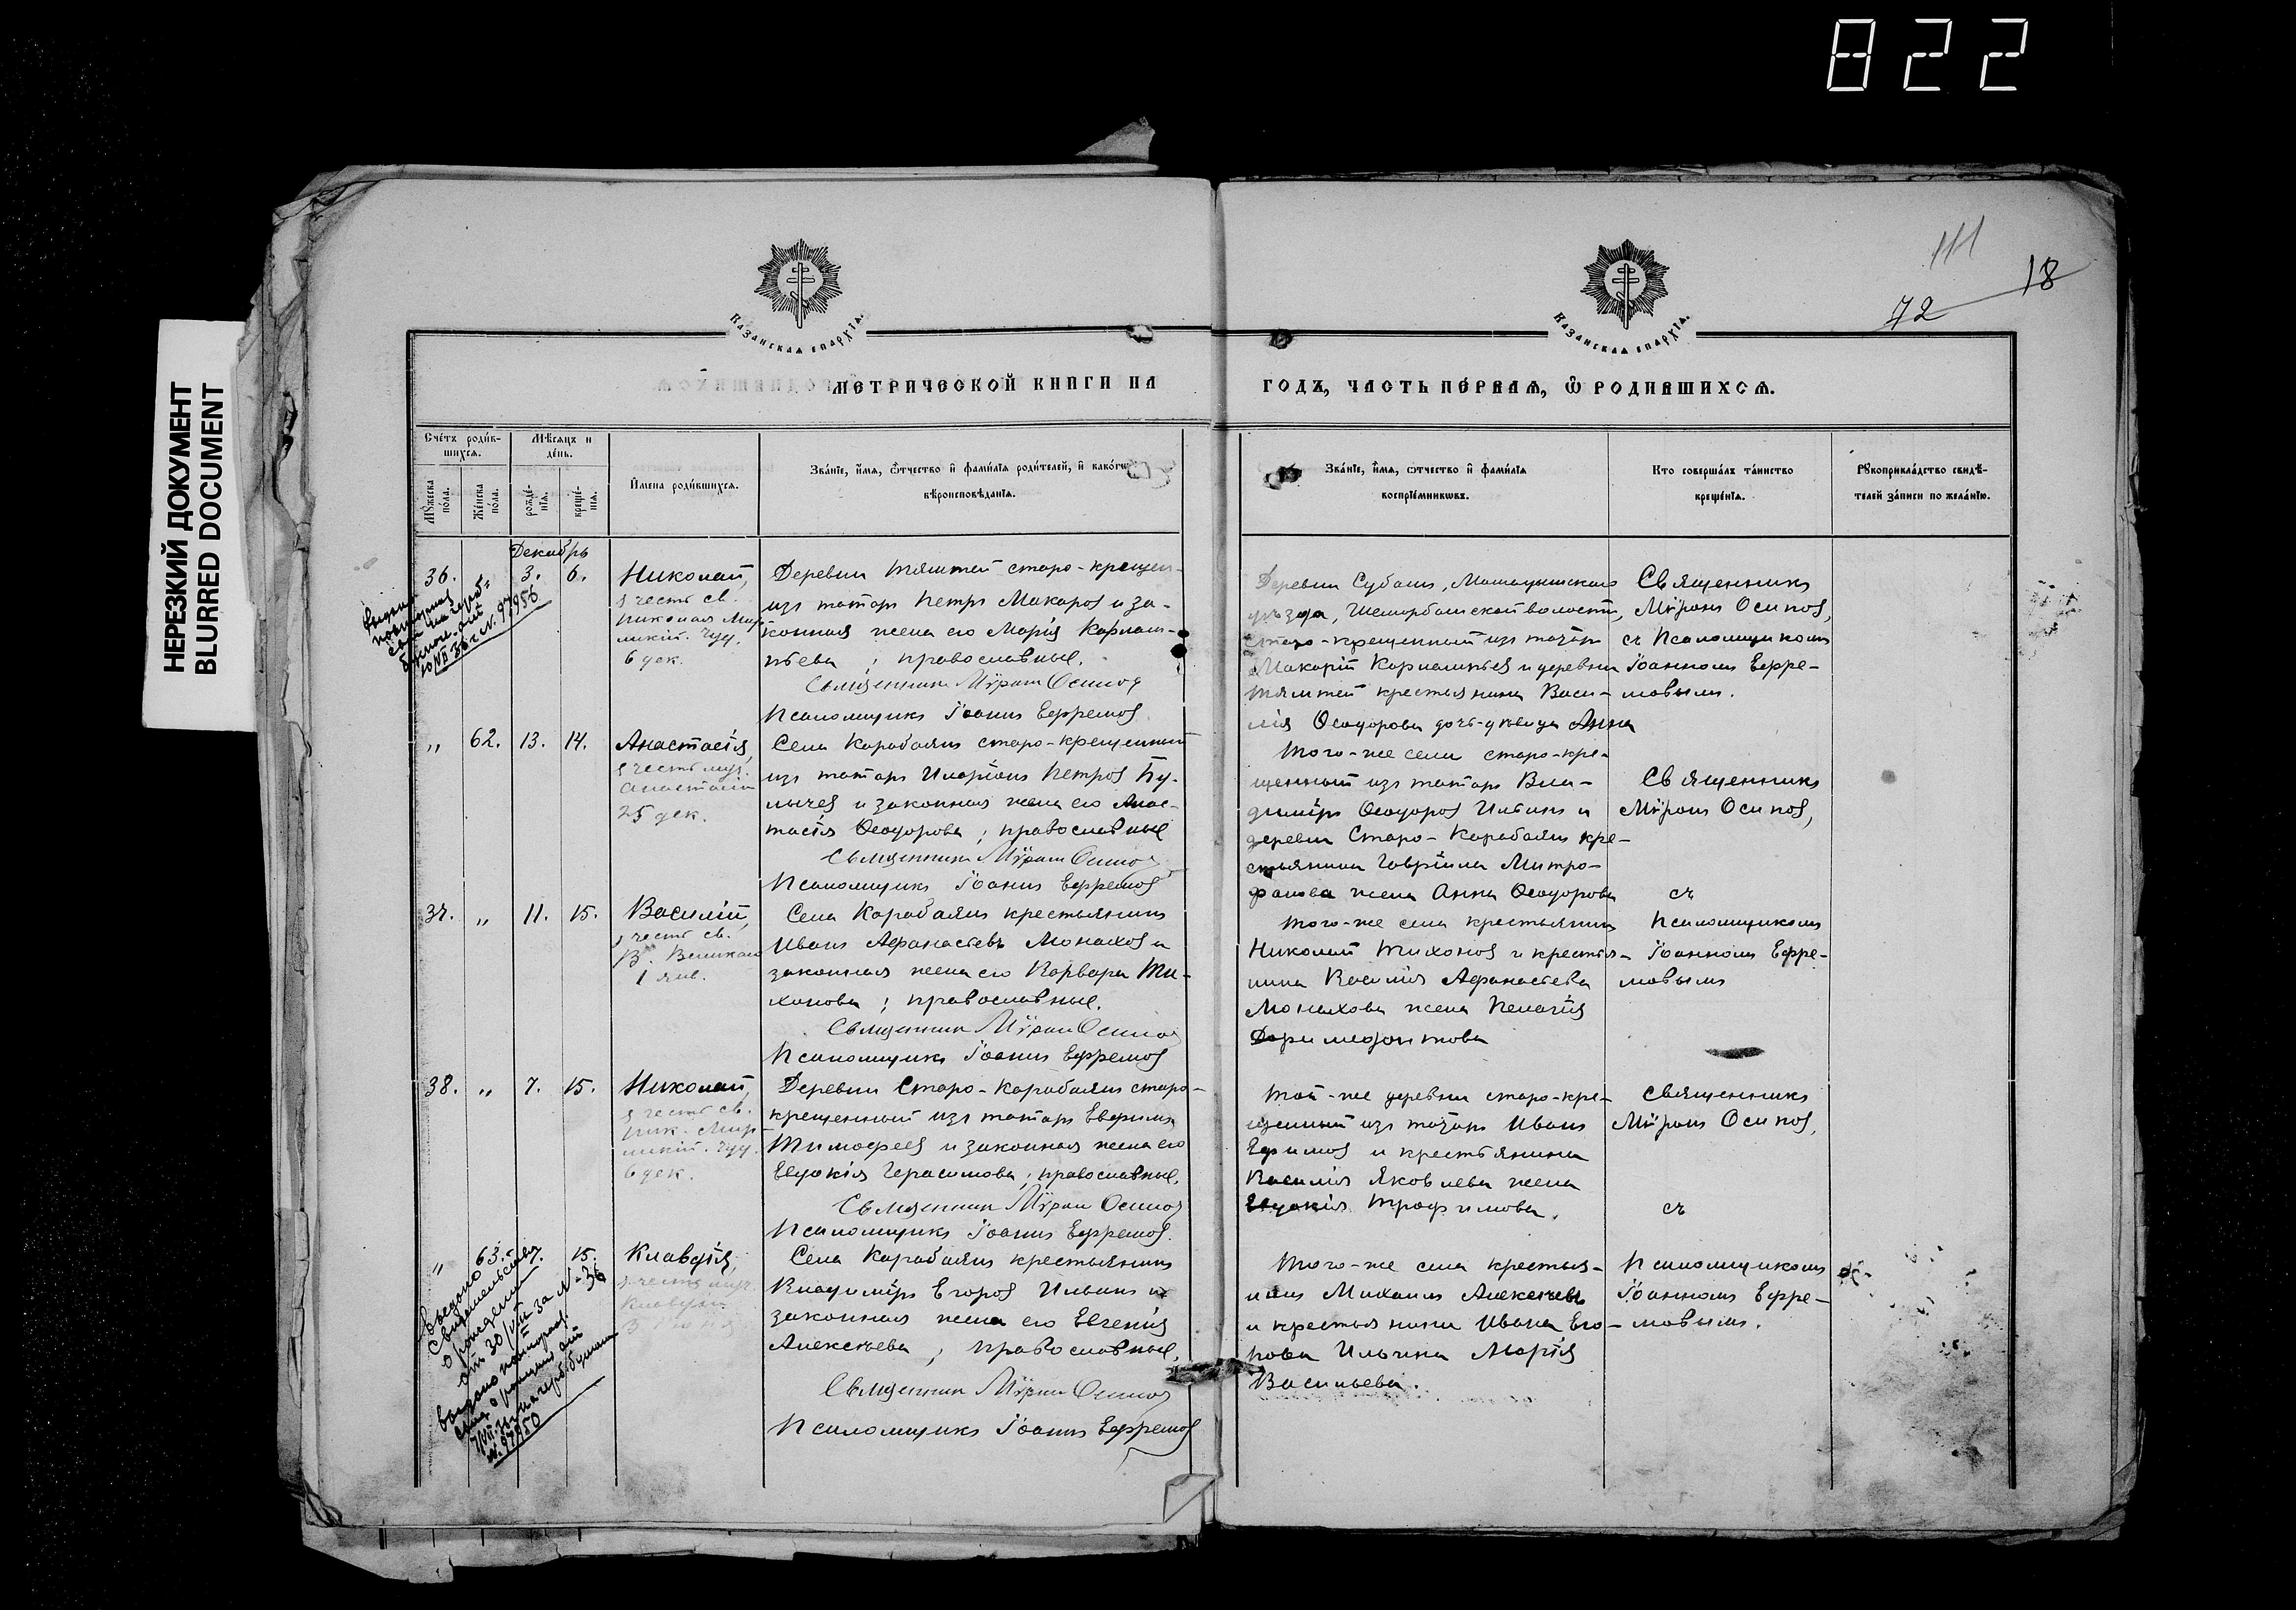 822
НЕРЕЗКИЙ ДОКУМЕНТ
BLURRED DOCUMENT
111
18
72
КАЗАНСКАѦ ЕПАРХІѦ.
КАЗАНСКАѦ ЕПАРХІѦ.
МЕТРИЧЕСКОЙ КНИГИ НА
ГОДЪ, ЧАСТЬ ПЕ́РВАѦ, Ѽ РОДИВШИХСѦ.
Сче́тъ роди́в-
шихсѧ.
Мѣсѧцъ и
де́нь.
Мꙋ́жеска
по́ла.
Же́нска
по́ла.
рожде́-
нїѧ.
креще́-
нїѧ.
И҆мена роди́вшихсѧ.
Зва́нїе, и҆́мѧ, ѻ҆́тчество и҆ фами́лїѧ роди́телей, и҆ како́гѡ
вѣроисповѣ́данїѧ.
Зва́нїе, и҆́мѧ, ѻ҆́тчество и҆ фами́лїѧ
воспрїе́мникѡвъ.
Кто соверша́лъ та́инство
креще́нїѧ.
Рꙋкоприкла́дство свидѣ́-
телей за́писи по жела́нїю.
Декабрь
36. 3. 6.
Николай,
въ честь св.
Николая Мир-
ликій. Чуд.
6 дек.
Деревни Тямтей старо-крещен.
изъ татаръ Петръ Макаровъ и за-
конная жена его Марія Карпан-
тьева; православные.
Священникъ Мѵронъ Осиповъ
Псаломщикъ Іоаннъ Ефремовъ
Деревни Субашъ, Мамадышскаго
уѣзда, Шеморбашской волости,
старо-крещенный изъ татаръ
Макарій Карпантьевъ и деревни
Тямтей крестьянина Васи-
лія Ѳеодорова дочь-дѣвица Анна
Священникъ
Мѵронъ Осиповъ,
съ Псаломщикомъ
Іоанномъ Ефре-
мовымъ.
" 62. 13. 14.
Анастасія,
въ честь муч.
Анастасіи
25 дек.
Села Карабаянъ старо-крещенный
изъ татаръ Иларіонъ Петровъ Бу-
лычевъ и законная жена его Анас-
тасія Ѳеодорова; православные
Священникъ Мѵронъ Осиповъ
Псаломщикъ Іоаннъ Ефремовъ
Того-же села старо-кре-
щенный изъ татаръ Вла-
диміръ Ѳеодоровъ Ильинъ и
деревни Старо-Карабаянъ кре-
стьянина Гавріила Митро-
фанова жена Анна Ѳеодорова
Священникъ
Мѵронъ Осиповъ,
съ
37. " 11. 15.
Василій,
въ честь св.
В. Великаго
1 янв.
Села Карабаянъ крестьянинъ
Иванъ Аѳанасьевъ Монаховъ и
законная жена его Варвара Ти-
хонова; православные.
Священникъ Мѵронъ Осиповъ
Псаломщикъ Іоаннъ Ефремовъ
Того-же села крестьянинъ
Николай Тихоновъ и крестья-
нина Василія Аѳанасьева
Монахова жена Пелагія
Доримедонтова
Псаломщикомъ
Іоанномъ Ефре-
мовымъ
38. " 7. 15.
Николай,
въ честь св.
Ник. Мир-
ликій. Чуд.
6 дек.
Деревни Старо-Карабаянъ старо-
крещенный изъ татаръ Евфимъ
Тимофеевъ и законная жена его
Евдокія Герасимова; православные.
Священникъ Мѵронъ Осиповъ
Псаломщикъ Іоаннъ Ефремовъ.
Той-же деревни старо-кре-
щенный изъ татаръ Иванъ
Ефимовъ и крестьянина
Василія Яковлева жена
Евдокія Трофимова.
Священникъ
Мѵронъ Осиповъ,
съ
" 63. 15.
Клавдія,
въ честь муч.
Клавдіи
Села Карабаянъ крестьянинъ
Владиміръ Егоровъ Ильинъ и
законная жена его Евгенія
Алексѣева; православные.
Священникъ Мѵронъ Осиповъ
Псаломщикъ Іоаннъ Ефремовъ
Того-же села крестья-
нинъ Михаилъ Алексѣевъ
и крестьянина Ивана Его-
рова Ильина Марія
Васильева.
Псаломщикомъ
Іоанномъ Ефре-
мовымъ.
Выдано
свидетельство
о рождении
от 30/VIII за № 36